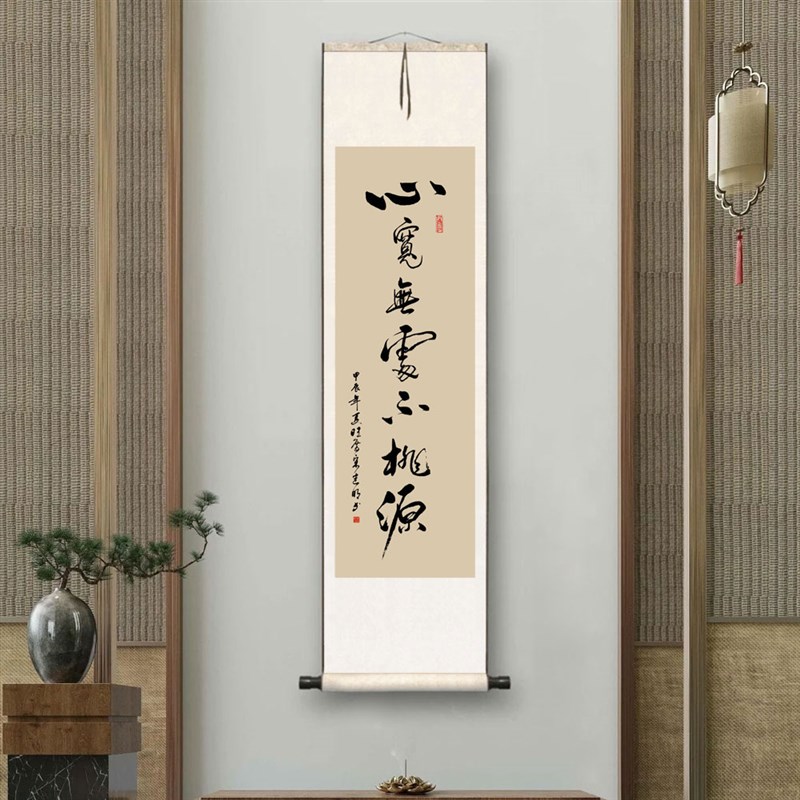 心寬無處不桃源
甲辰年